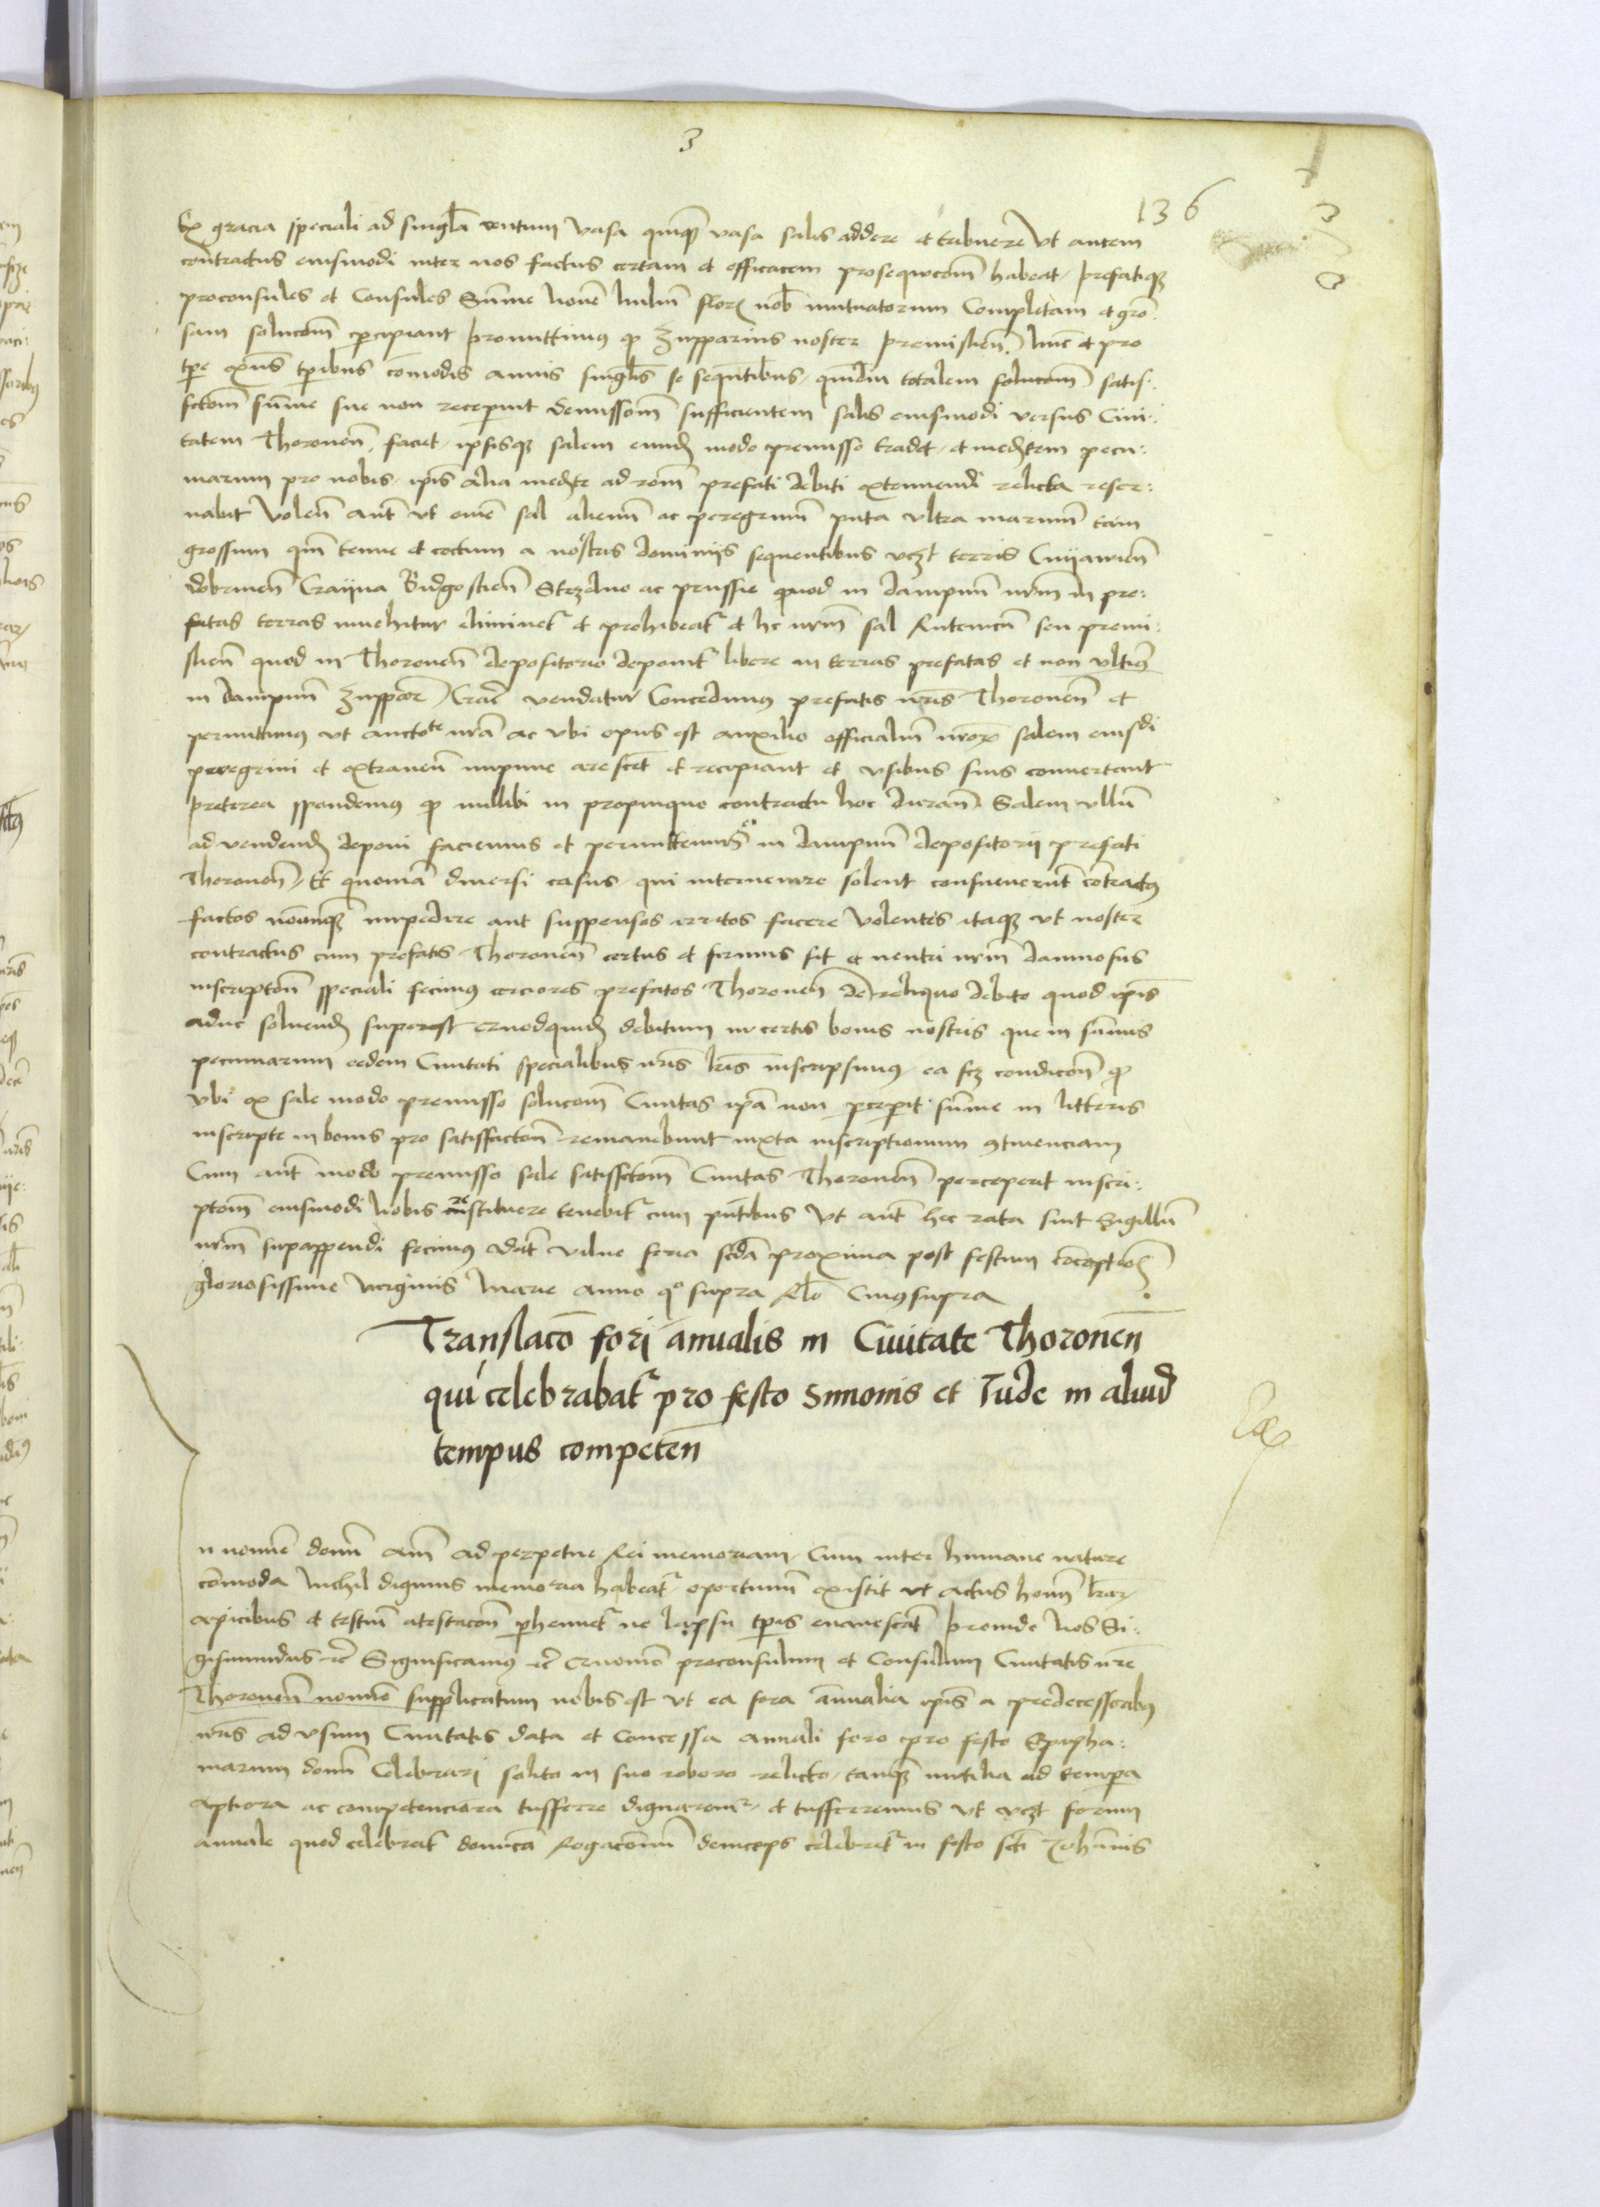 3
136
Ex gracia speciali ad singla centum vasa quinq vasa salis addere et tribuere Vt autem
contractus eiusmodi inter nos factus certam et efficacem prosequcom habeat prefatiq
proconsules et Consules Sume novem milium floreñ nob mutuatorum Completam et gro
sam solucom percipiant promittimus qp Zupparius noster premislieñ hinc et pro
tpe exñs tpibus comodis annis singlis se sequentibus, quadiu totalem solucom satis-
fctom sume sue non receperint demissiom sufficientem salis eiusmodi versus Civi-
tatem Thoroneñ faciet, ipsisq salem eundem modo premisso tradet, et medtem pecu-
niarum pro nobis, ipis alia medtte ad rom prefati debiti extenuendi relicta reser-
uabit Voleñ aut vt omem sal alienum ac peregrinum puta vltra marinum tam
grossum qm tenue et coctum a nostris dominijs sequentibus vczt terris Cuijauieñ
dobrineñ Crayna Bidgostieñ Slezano ac prussie quod in dampnum nrm in pre-
fatas terras inuehitur eliminet et prohibeat et hc nrm sal Rutenicum seu premi-
slieñ quod in Thoroneñ depositorio deponit libere in terras prefatas et non vltius
in dampnum Zuppar Crac vendatur Concedimus prefatis nris Thoroneñ et
permittimus vt auctote nra ac vbi opus est auxilio officialium nrorum salem eiusdi
peregrini et extraneum impune arescet et recipiant et vsibus suis conuertant
preterea spondemus qp nullibi in propinquo contractu hoc durañ Salem vllum
ad vendendum deponi faciemus et permittemus in dampnum depositorij prefati
Thoroneñ Et quoniam diuersi casus qui interuenire solent consueuerunt contractus
factos nonunq impedire aut suspensos irritos facere Volentes itaq vt noster
contractus cum prefatis Thoroneñ certus et firmus sit et neutri nrm damnosus
inscriptom speciali fecimus cerciores prefatos Thoroneñ de reliquo debito quod ipis
aduc soluendum superest quodquidem debitum in certis bonis nostris que in sumis
pecuniarum eedem Ciuitati specialibus nris lris inscripsimus ea scz condicom qp
Vbi ex sale modo premisso solucom Ciuitas ipa non perceperit sume in litteris
inscripte in bonis pro satisfactom remanebunt iuxta inscriptionum continenciam
Cum aut modo premisso sale satisfctom Ciuitas Thoroneñ perceperit inscri-
ptom eiusmodi Nobis restituere tenebit cum pntibus Vt aut hec rata sint Sigillum
nrm supappendi fecimus Dat Vilne feria scda proxima post festum concepcois
gloriosissime virginis Marie anno qo supra Rlo Cuius supra
Translaco fori annualis in Ciuitate Thoroneñ
qui celebrabat pro festo Simonis et Jude in aliud
tempus competeñ
n nomine domi ameñ Ad perpetue Rei memoriam Cum inter humane nature
comoda Nichil dignius memoria habeat oportunum existit vt actus homi lrar
apicibus et testium atestacom perhennet ne lapsu tpis euanescat proinde Nos Si-
gismundus etc Significamus etc quomodo proconsulum et Consulum Ciuitatis nre
Thoroneñ nomine supplicatum nobis est vt ea fora annalia ipis a predecessoribus
nris ad vsum Ciuitatis data et Concessa annali foro pro festo Epipha-
niarum domi Celebrari solito in suo robore relicto tanq inutilia ad tempora
aptiora ac competenciora tnsferre dignaremur et tnsferremus vt vczt forum
annale quod celebrat domica Rogacionum deinceps celebret in festo sci Johannis